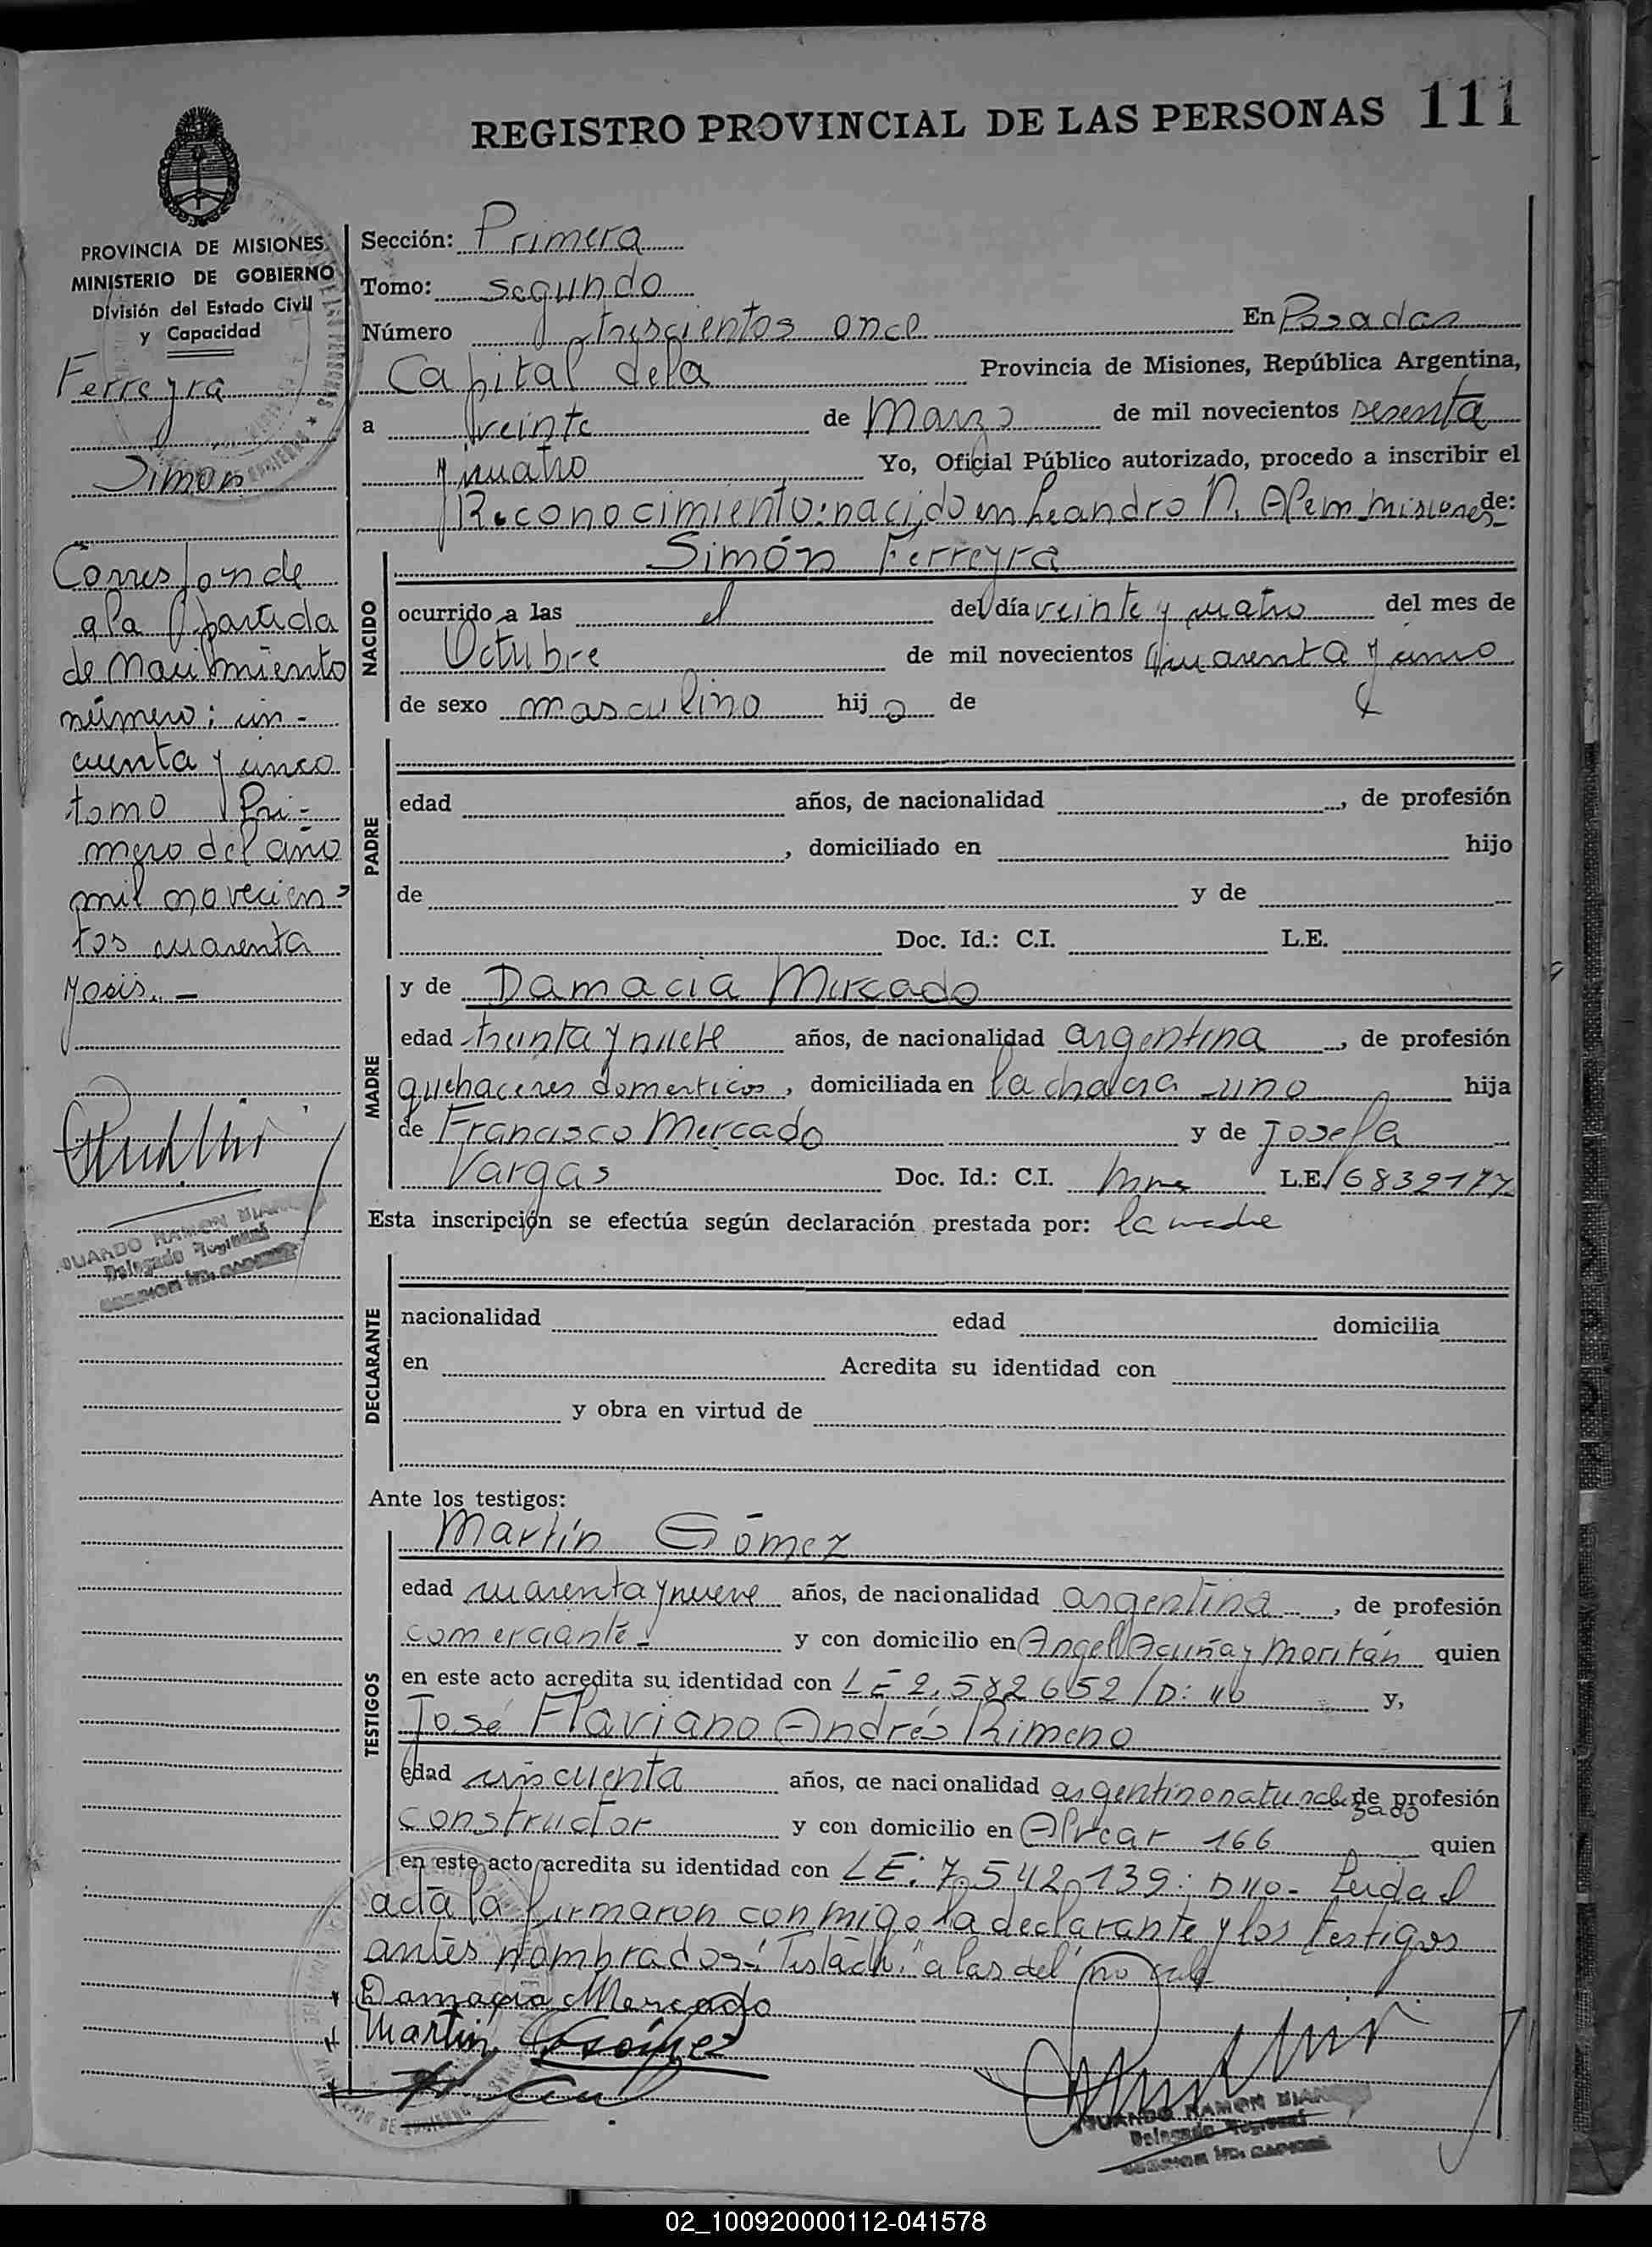 REGISTRO PROVINCIAL DE LAS PERSONAS 111
PROVINCIA DE MISIONES
MINISTERIO DE GOBIERNO
División del Estado Civil
y Capacidad
Ferreyra
Simon
Corresponde
a la partida
de Nacimiento
número: cin-
cuenta y cinco
tomo Pri-
mero del año
mil novecien-
tos cuarenta
y seis.-
Delegado Regional
Sección: Primera
Tomo: segundo
Número trescientos once En Posadas
Capital dela Provincia de Misiones, República Argentina,
a veinte de Marzo de mil novecientos sesenta
y cuatro Yo, Oficial Público autorizado, procedo a inscribir el
Reconocimiento: nacido en Leandro N. Alem Misiones de:
NACIDO
Simón Ferreyra
ocurrido a las el del día veinte y cuatro del mes de
Octubre de mil novecientos cuarenta y uno
de sexo masculino hijo de
PADRE
edad años, de nacionalidad , de profesión
, domiciliado en hijo
de y de
Doc. Id.: C.I. L.E.
MADRE
y de Damacia Mercado
edad treinta y nueve años, de nacionalidad argentina , de profesión
quehaceres domesticos , domiciliada en la chacra uno hija
de Francisco Mercado y de Josefa
Vargas Doc. Id.: C.I. L.E. 6839177
Esta inscripción se efectúa según declaración prestada por: la madre
DECLARANTE
nacionalidad edad domicilia
en Acredita su identidad con
y obra en virtud de
Ante los testigos:
TESTIGOS
Martín Gómez
edad cuarenta y nueve años, de nacionalidad argentina , de profesión
comerciante - y con domicilio en Angel Acuña y Moritán quien
en este acto acredita su identidad con LE 2.582652/D: y,
José Flaviano Andrés Rimeno
edad cincuenta años, de nacionalidad argentino naturalizado de profesión
constructor y con domicilio en Alvear 166 quien
en este acto acredita su identidad con LE: 7.542.139: Leida el
acta la firmaron conmigo la declarante y los testigos
antes nombrados: Testado: "a las del" no vale
Damacia Mercado
Martin Gómez
Delegado Regional
02_100920000112-041578